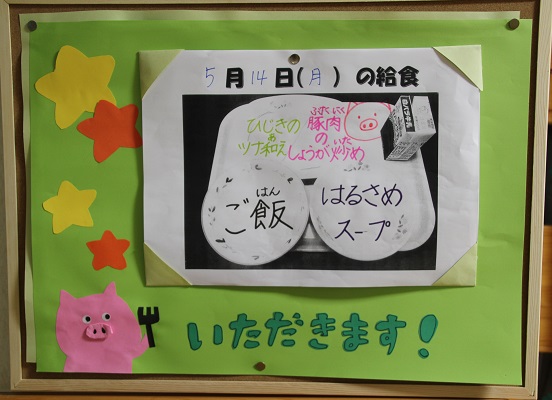 5月14日(月) の給食
ひじきの
ツナ和え
あ
ぶたにく
豚肉
の
しょうが炒め
いた
はん
ご飯
はるさめ
スープ
いただきます!